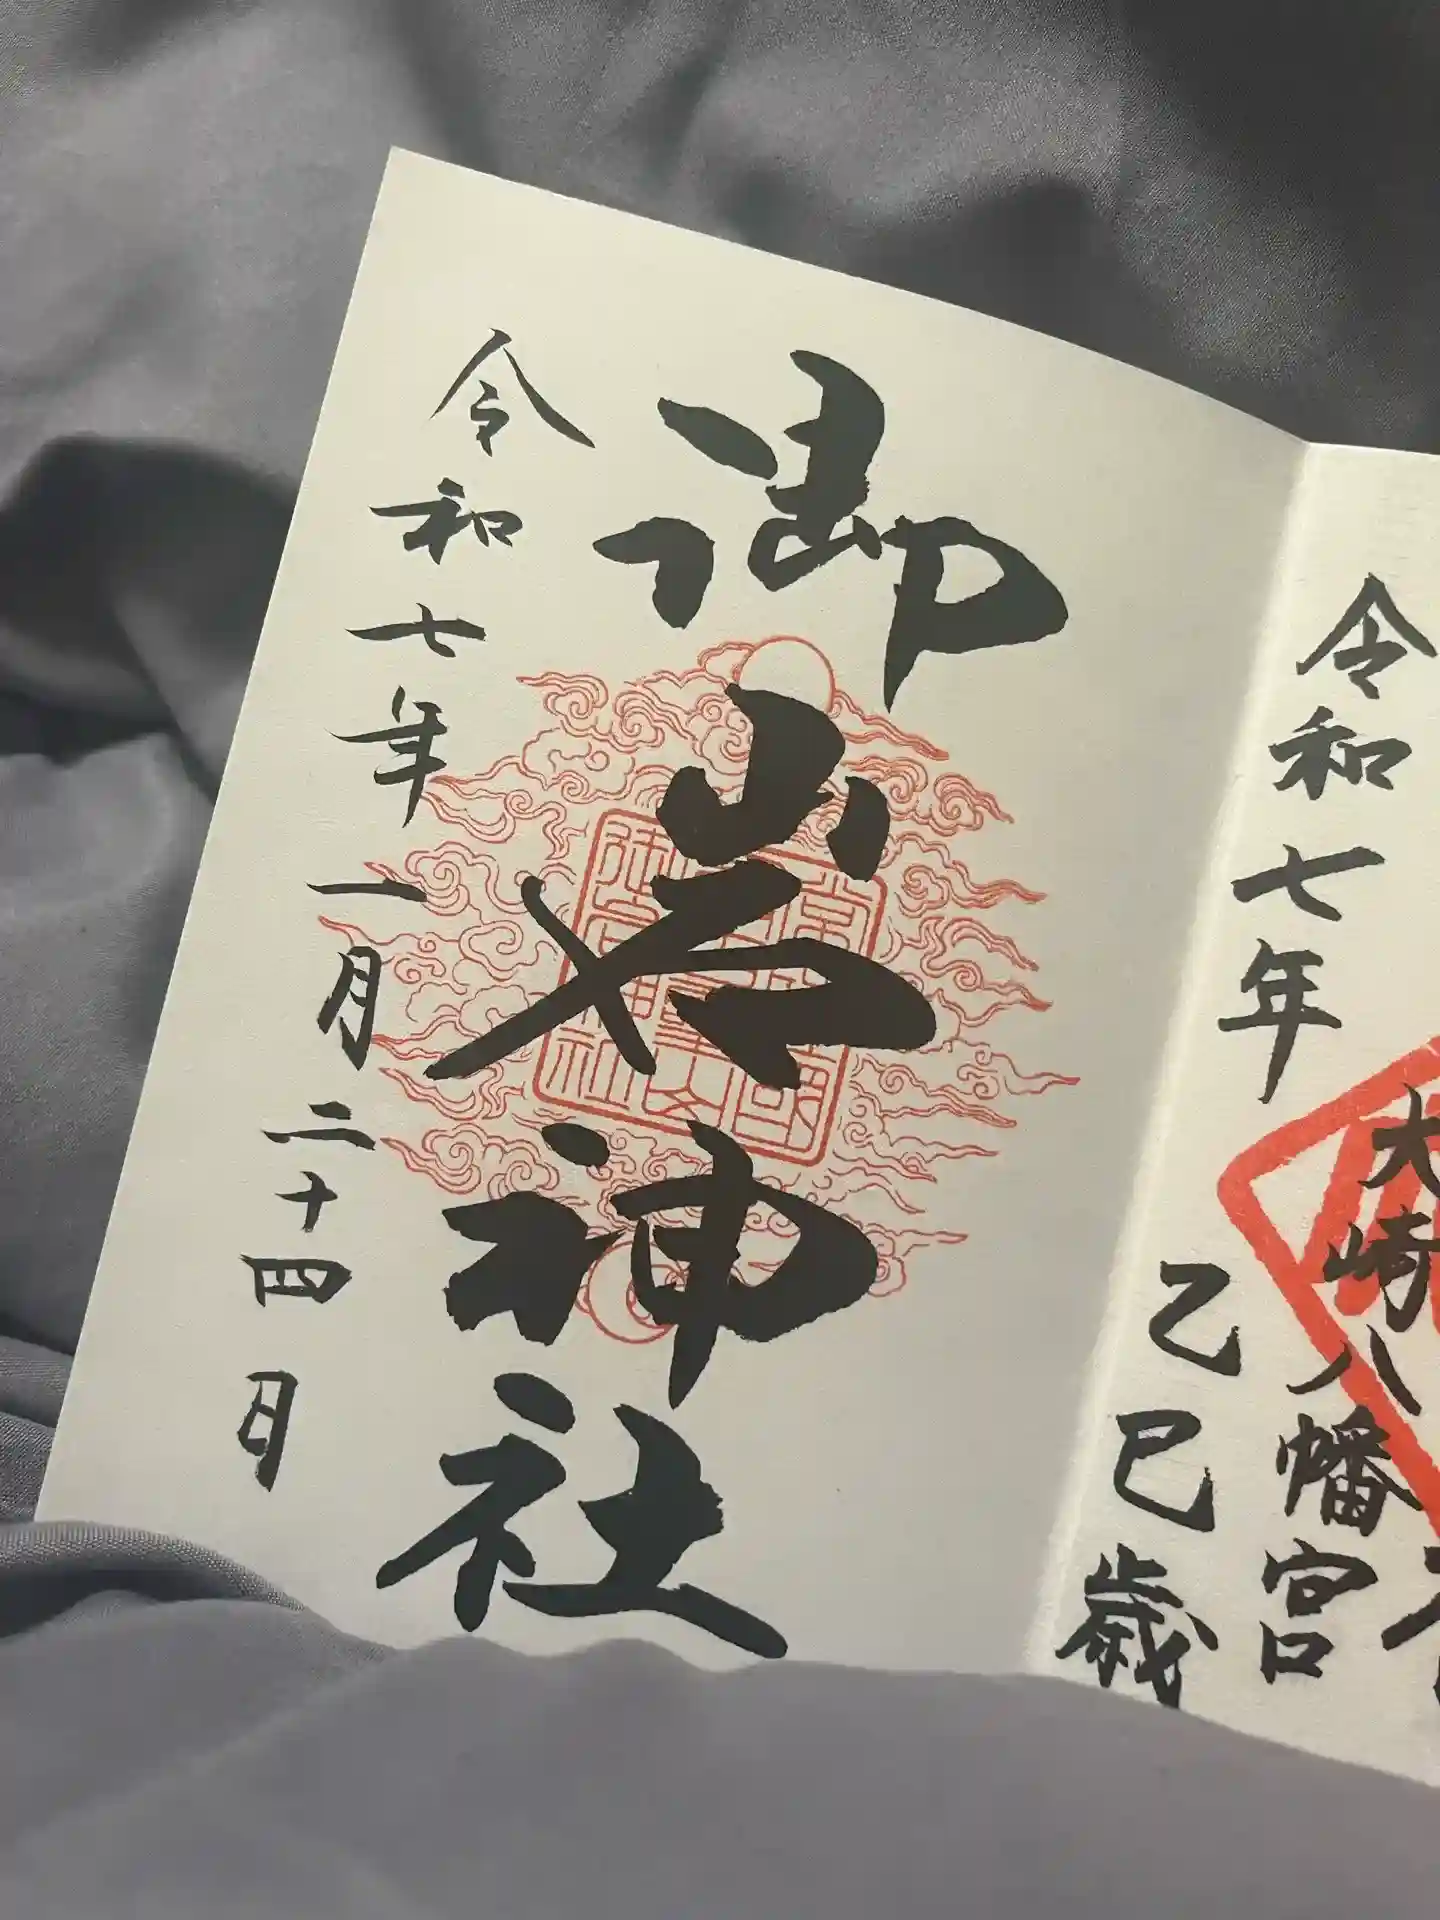 大崎八幡宮
令和七年
乙巳歳
御岩神社
令和七年一月二十四日